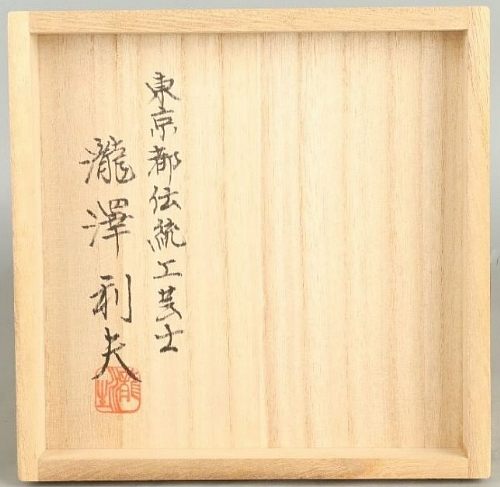 東京都伝統工芸士
瀧澤利夫